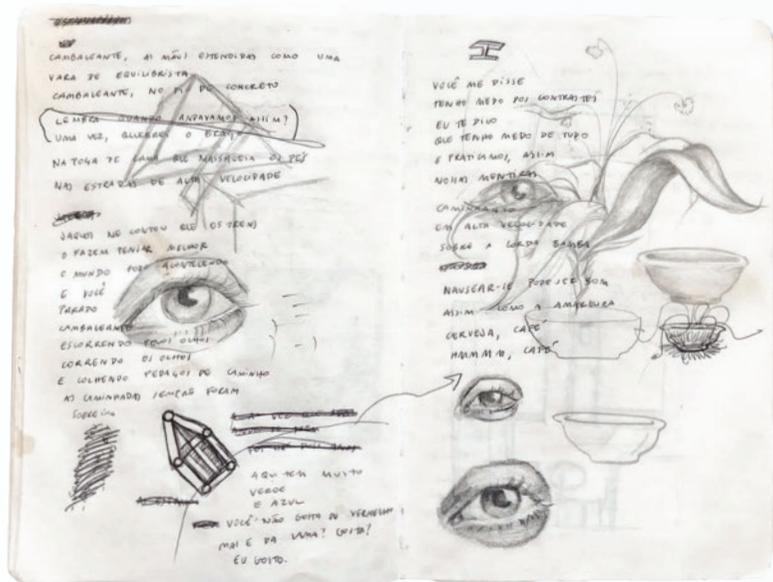 CAMBALEANTE, AS MÃOS ESTENDIDAS COMO UMA
VARA DE EQUILIBRISTA
CAMBALEANTE, NO DE CONCRETO
LEMBRA QUANDO ANDAVAMOS ASSIM?
UMA VEZ, O
NA DE LAMA QUE MASSAGEIA OS PÉS
NAS ESTRADAS DE ALTA VELOCIDADE
JAQUES ME CONTOU QUE OS TRENS
O FAZEM PENSAR MELHOR
O MUNDO TODO ACONTECENDO
E VOCÊ
PARADO
CAMBALEANTE
ESCORRENDO PELOS OLHOS
CORRENDO OS OLHOS
E COLHENDO PEDAÇOS DE CAMINHO
AS CAMINHADAS SEMPRE FORAM
SOBRE
AQUI TEM MUITO
VERDE
E AZUL
VOCÊ NÃO GOSTA DE VERMELHO
MAS E DA LAMA? GOSTA?
EU GOSTO.
I
VOCÊ ME DISSE
TENHO MEDO DOS CONTRASTES
EU TE DIGO
QUE TENHO MEDO DE TUDO
E PRATICAMOS, ASSIM
NOSSAS MENTIRAS
CAMINHANDO
EM ALTA VELOCIDADE
SOBRE A CORDA BAMBA
NAUSEAR-SE PODE SER BOM
ASSIM COMO A AMARGURA
CERVEJA, CAFÉ
HMMMM, CAFÉ